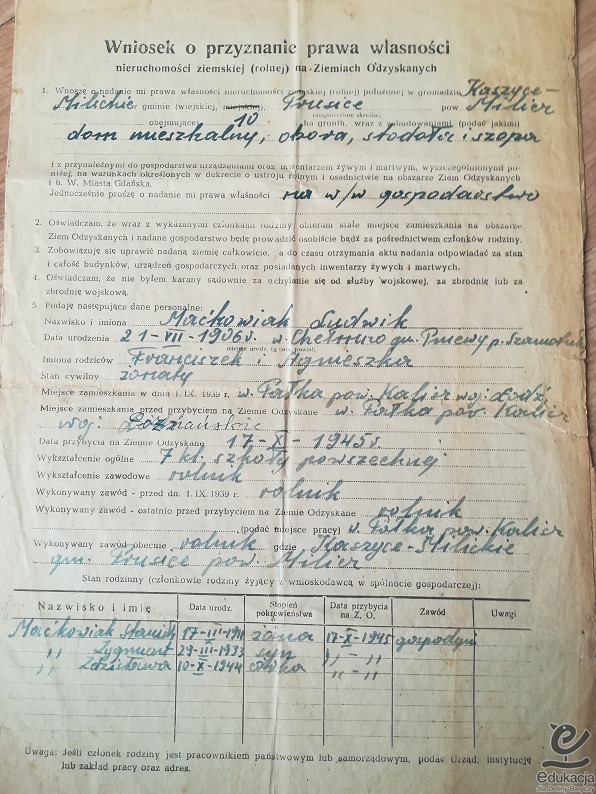 Wniosek o przyznanie prawa własności
nieruchomości ziemskiej (rolnej) na Ziemiach Odzyskanych
1. Wnoszę o nadanie mi prawa własności nieruchomości ziemskiej (rolnej) położonej w gromadzie Kaszyce-
Milickie w gminie (wiejskiej, miejskiej) Prusice pow. Milicz
obejmującej 10 ha gruntu, wraz z zabudowaniami, (podać jakimi)
dom mieszkalny, obora, stodoła i szopa
i z przynależnymi do gospodarstwa urządzeniami oraz inwentarzem żywym i martwym, wyszczególnionymi po-
niżej, na warunkach określonych w dekrecie o ustroju rolnym i osadnictwie na obszarze Ziem Odzyskanych
i b. W. Miasta Gdańska.
Jednocześnie proszę o nadanie mi prawa własności na w/w gospodarstwo
2. Oświadczam, że wraz z wykazanymi członkami rodziny obieram stałe miejsce zamieszkania na obszarze
Ziem Odzyskanych i nadane gospodarstwo będę prowadził osobiście bądź za pośrednictwem członków rodziny.
3. Zobowiązuję się uprawić nadaną ziemię całkowicie, a do czasu otrzymania aktu nadania odpowiadać za stan
i całość budynków, urządzeń gospodarczych oraz posiadanych inwentarzy żywych i martwych.
4. Oświadczam, że nie byłem karany sądownie za uchylanie się od służby wojskowej, za zbrodnię lub za
zbrodnię wojskową.
5. Podaję następujące dane personalne:
Nazwisko i imiona Maćkowiak Ludwik
Data urodzenia 21-VII-1906 r. w. Chełmno gm. Pniewy p. Szamotuły
Imiona rodziców Franciszek i Agnieszka
Stan cywilny żonaty
Miejsce zamieszkania w dniu 1. IX. 1939 r. w. Pałka pow. Kalisz woj. Łódź
Miejsce zamieszkania przed przybyciem na Ziemie Odzyskane w. Pałka pow. Kalisz
woj. Poznańskie
Data przybycia na Ziemie Odzyskane 17-X-1945 r.
Wykształcenie ogólne 7 kl. szkoły powszechnej
Wykształcenie zawodowe rolnik
Wykonywany zawód - przed dn. 1. IX. 1939 r. rolnik
Wykonywany zawód - ostatnio przed przybyciem na Ziemie Odzyskane rolnik
(podać miejsce pracy) w. Pałka pow. Kalisz
Wykonywany zawód obecnie rolnik gdzie Kaszyce-Milickie
gm. Prusice pow. Milicz
Stan rodzinny (członkowie rodziny żyjący z wnioskodawcą w spólnocie gospodarczej):
Nazwisko i imię Data urodz. Stopień pokrewieństwa Data przybycia na Z. O. Zawód Uwagi
Maćkowiak 17-III-1911 żona 17-X-1945 gospodyni
,, Zygmunt 29-III-1933 syn ,, - ,,
,, Zdzisława 10-X-1944 córka ,, - ,,
Uwaga: Jeśli członek rodziny jest pracownikiem państwowym lub samorządowym, podać Urząd, instytucję
lub zakład pracy oraz adres.
Edukacja
dla Doliny Baryczy